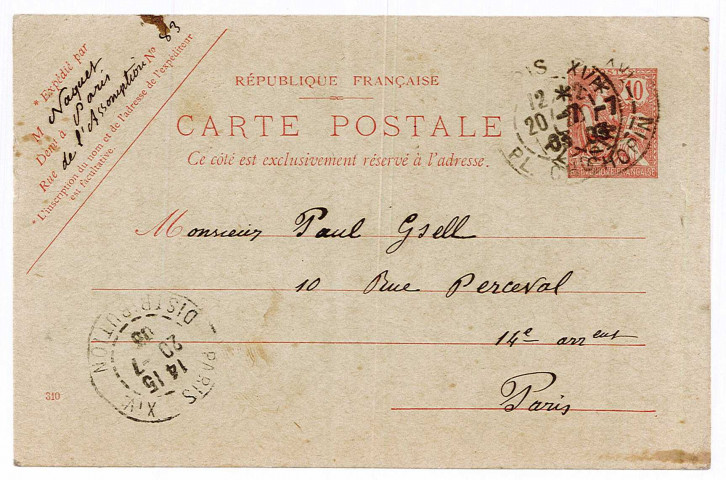 * Expédié par
M Naquet
Demt à Paris
Rue de l'Assomption No 83
* L'inscription du nom et de l'adresse de l'expéditeur
est facultative.
RÉPUBLIQUE FRANÇAISE
CARTE POSTALE
Ce côté est exclusivement réservé à l'adresse.
XVI
12 *
20 -7
PL. CHOPIN
10
Monsieur Paul Gsell
10 Rue Perceval
14e arrent
Paris
PARIS XIV
DISTRIBUTION
14 15
20 -7
08
310